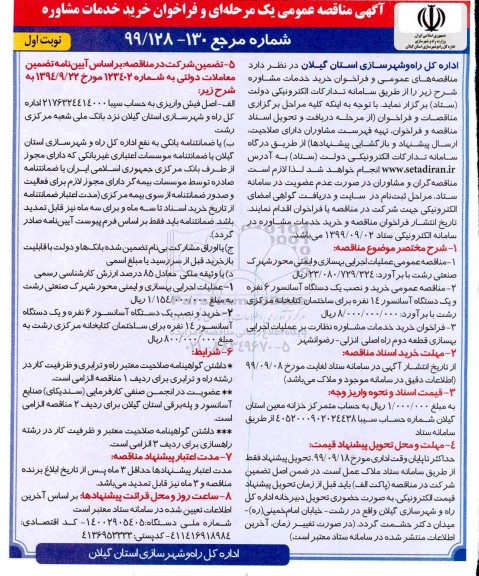 آگهی مناقصه عمومی یک مرحله‌ای و فراخوان خرید خدمات مشاوره
جمهوری اسلامی ایران
وزارت راه و شهرسازی
اداره کل راه و شهرسازی استان گیلان
شماره مرجع ۱۳۰- ۹۹/۱۲۸
نوبت اول
اداره کل راه‌وشهرسازی استان گیلان در نظر دارد
مناقصه‌های عمومی و فراخوان خرید خدمات مشاوره
شرح زیر را از طریق سامانه تدارکات الکترونیکی دولت
(ستاد) برگزار نماید. با توجه به اینکه کلیه مراحل برگزاری
مناقصات و فراخوان (از مرحله دریافت و تحویل اسناد
مناقصه و فراخوان، تهیه فهرست مشاوران دارای صلاحیت،
ارسال پیشنهاد و بازگشایی پیشنهادها) از طریق درگاه
سامانه تدارکات الکترونیکی دولت (ستاد) به آدرس
www.setadiran.ir انجام خواهد شد لذا لازم است
مناقصه‌گران و مشاوران در صورت عدم عضویت در سامانه
ستاد، مراحل ثبت‌نام در سایت و دریافت گواهی امضای
الکترونیکی جهت شرکت در مناقصه یا فراخوان اقدام نمایند.
تاریخ انتشار فراخوان مناقصه و خرید خدمات مشاوره در
سامانه الکترونیکی ستاد ۱۳۹۹/۰۹/۰۲ می‌باشد.
۱- شرح مختصر موضوع مناقصه:
۱- مناقصه عمومی عملیات اجرایی بهسازی و ایمنی محور شهرک
صنعتی رشت با برآورد: ۲۳/۰۸۰/۷۲۹/۳۲۴ ریال
۲- مناقصه عمومی خرید و نصب یک دستگاه آسانسور ۶ نفره
و یک دستگاه آسانسور ۱۴ نفره برای ساختمان کتابخانه مرکزی
رشت با برآورد: ۸/۰۰۰/۰۰۰/۰۰۰ ریال
۳- فراخوان خرید خدمات مشاوره نظارت بر عملیات اجرایی
بهسازی قطعه دوم راه اصلی انزلی - رضوانشهر
۲- مهلت خرید اسناد مناقصه:
از تاریخ انتشار آگهی در سامانه ستاد لغایت مورخ ۹۹/۰۹/۰۸
(اطلاعات دقیق در سامانه موجود و ملاک می‌باشد)
۳- قیمت اسناد و نحوه واریز وجه:
به مبلغ ۱/۰۰۰/۰۰۰ ریال به حساب متمرکز خزانه معین استان
گیلان شماره حساب سیبا ۴۰۵۲۰۰۰۹۰۲۰۲۴۴۳۸ از طریق
سامانه ستاد
۴- مهلت و محل تحویل پیشنهاد قیمت:
حداکثر تا پایان وقت اداری مورخ ۹۹/۰۹/۱۸. تحویل پیشنهاد فقط
از طریق سامانه ستاد ملاک عمل است. در ضمن اصل تضمین
شرکت در مناقصه (پاکت الف) باید قبل از زمان تحویل پیشنهاد
قیمت الکترونیکی، به صورت حضوری تحویل دبیرخانه اداره کل
راه و شهرسازی گیلان واقع در رشت- خیابان امام‌خمینی(ره)-
میدان دکتر حشمت گردد. (در صورت تغییر زمان، آخرین
اطلاعات منتشر شده در سامانه ستاد معتبر است)
۵- تضمین شرکت در مناقصه: بر اساس آیین‌نامه تضمین
معاملات دولتی به شماره ۱۲۳۴۰۲ مورخ ۱۳۹۴/۹/۲۲ به
شرح زیر:
الف- اصل فیش واریزی به حساب سیبا ۲۱۷۶۳۲۴۴۱۴۰۰۰ اداره
کل راه و شهرسازی استان گیلان نزد بانک ملی شعبه مرکزی
رشت
ب) یا ضمانتنامه بانکی به نفع اداره کل راه و شهرسازی استان
گیلان یا ضمانتنامه موسسات اعتباری غیربانکی که دارای مجوز
از طرف بانک مرکزی جمهوری اسلامی ایران یا ضمانتنامه
صادره توسط موسسات بیمه‌گر دارای مجوز لازم برای فعالیت
و صدور ضمانتنامه از سوی بیمه مرکزی (مدت اعتبار ضمانتنامه
از تاریخ خرید اسناد تا سه ماه و برای سه ماه نیز قابل تمدید
باشد. ضمانتنامه باید فقط بر اساس فرم پیوست آیین‌نامه صادر
گردد).
ج) یا اوراق مشارکت بی‌نام تضمین شده بانک‌ها و دولت با قابلیت
بازخرید قبل از سررسید یا مبلغ اسمی
د) یا وثیقه ملکی معادل ۸۵ درصد ارزش کارشناسی رسمی
۱- عملیات اجرایی بهسازی و ایمنی محور شهرک صنعتی رشت
۲- خرید و نصب یک دستگاه آسانسور ۶ نفره و یک دستگاه
آسانسور ۱۴ نفره برای ساختمان کتابخانه مرکزی رشت به
مبلغ ۸۰۰/۰۰۰/۰۰۰ ریال
۶- شرایط:
* داشتن گواهینامه صلاحیت معتبر راه و ترابری و ظرفیت کار در
رشته راه و ترابری برای ردیف ۱ مناقصه الزامی است.
** عضویت در انجمن صنفی کارفرمایی (سندیکای) صنایع
آسانسور و پله‌برقی استان گیلان برای ردیف ۲ مناقصه الزامی
است.
*** داشتن گواهینامه صلاحیت معتبر و ظرفیت کار در رشته
راهسازی برای ردیف ۳ الزامی است.
۷- مدت اعتبار پیشنهاد مناقصه:
مدت اعتبار پیشنهادها حداقل ۳ ماه پس از تاریخ ابلاغ برنده
مناقصه و ۳ ماه نیز قابل تمدید می‌باشد.
۸- ساعت روز و محل قرائت پیشنهادها: بر اساس آخرین
اطلاعات تعیین شده در سامانه ستاد معتبر است
شماره ملی دستگاه: ۱۴۰۰۲۹۰۵۴۰۵- کد اقتصادی:
۴۱۱۴۱۶۹۱۸۹۸۴- کدپستی: ۴۱۳۶۹۵۳۳۳۳
اداره کل راه‌وشهرسازی استان گیلان